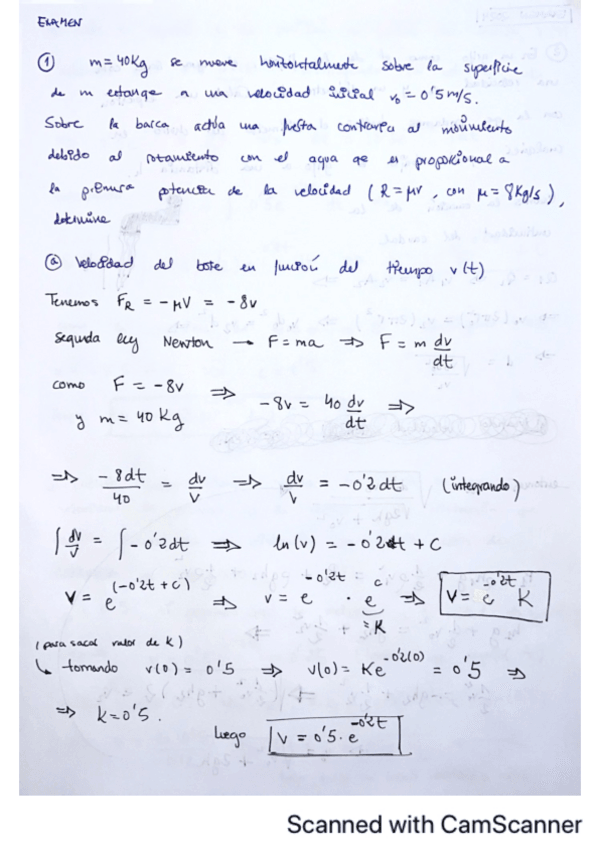 EXAMEN
① m = 40Kg se mueve horizontalmente sobre la superficie
de un estanque a una velocidad inicial v₀ = 0'5 m/s.
Sobre la barca actúa una fuerza contraria al movimiento
debido al rozamiento con el agua qe es proporcional a
la primera potencia de la velocidad (R = μv, con μ = 8Kg/s),
determine
ⓐ Velocidad del bote en función del tiempo v(t)
Tenemos F_R = -μv = -8v
Segunda ley Newton → F = ma ⇒ F = m dv/dt
como F = -8v ⇒ -8v = 40 dv/dt ⇒
y m = 40 Kg
⇒ -8dt/40 = dv/v ⇒ dv/v = -0'2dt (integrando)
∫ dv/v = ∫ -0'2dt ⇒ ln(v) = -0'2t + c
v = e^(-0'2t + c) ⇒ v = e^-0'2t · e^c ⇒ v = e^-0'2t K
= K
(para sacar valor de k)
↳ tomando v(0) = 0'5 ⇒ v(0) = Ke^-0'2(0) = 0'5 ⇒
⇒ k = 0'5.
luego v = 0'5 · e^-0'2t
Scanned with CamScanner